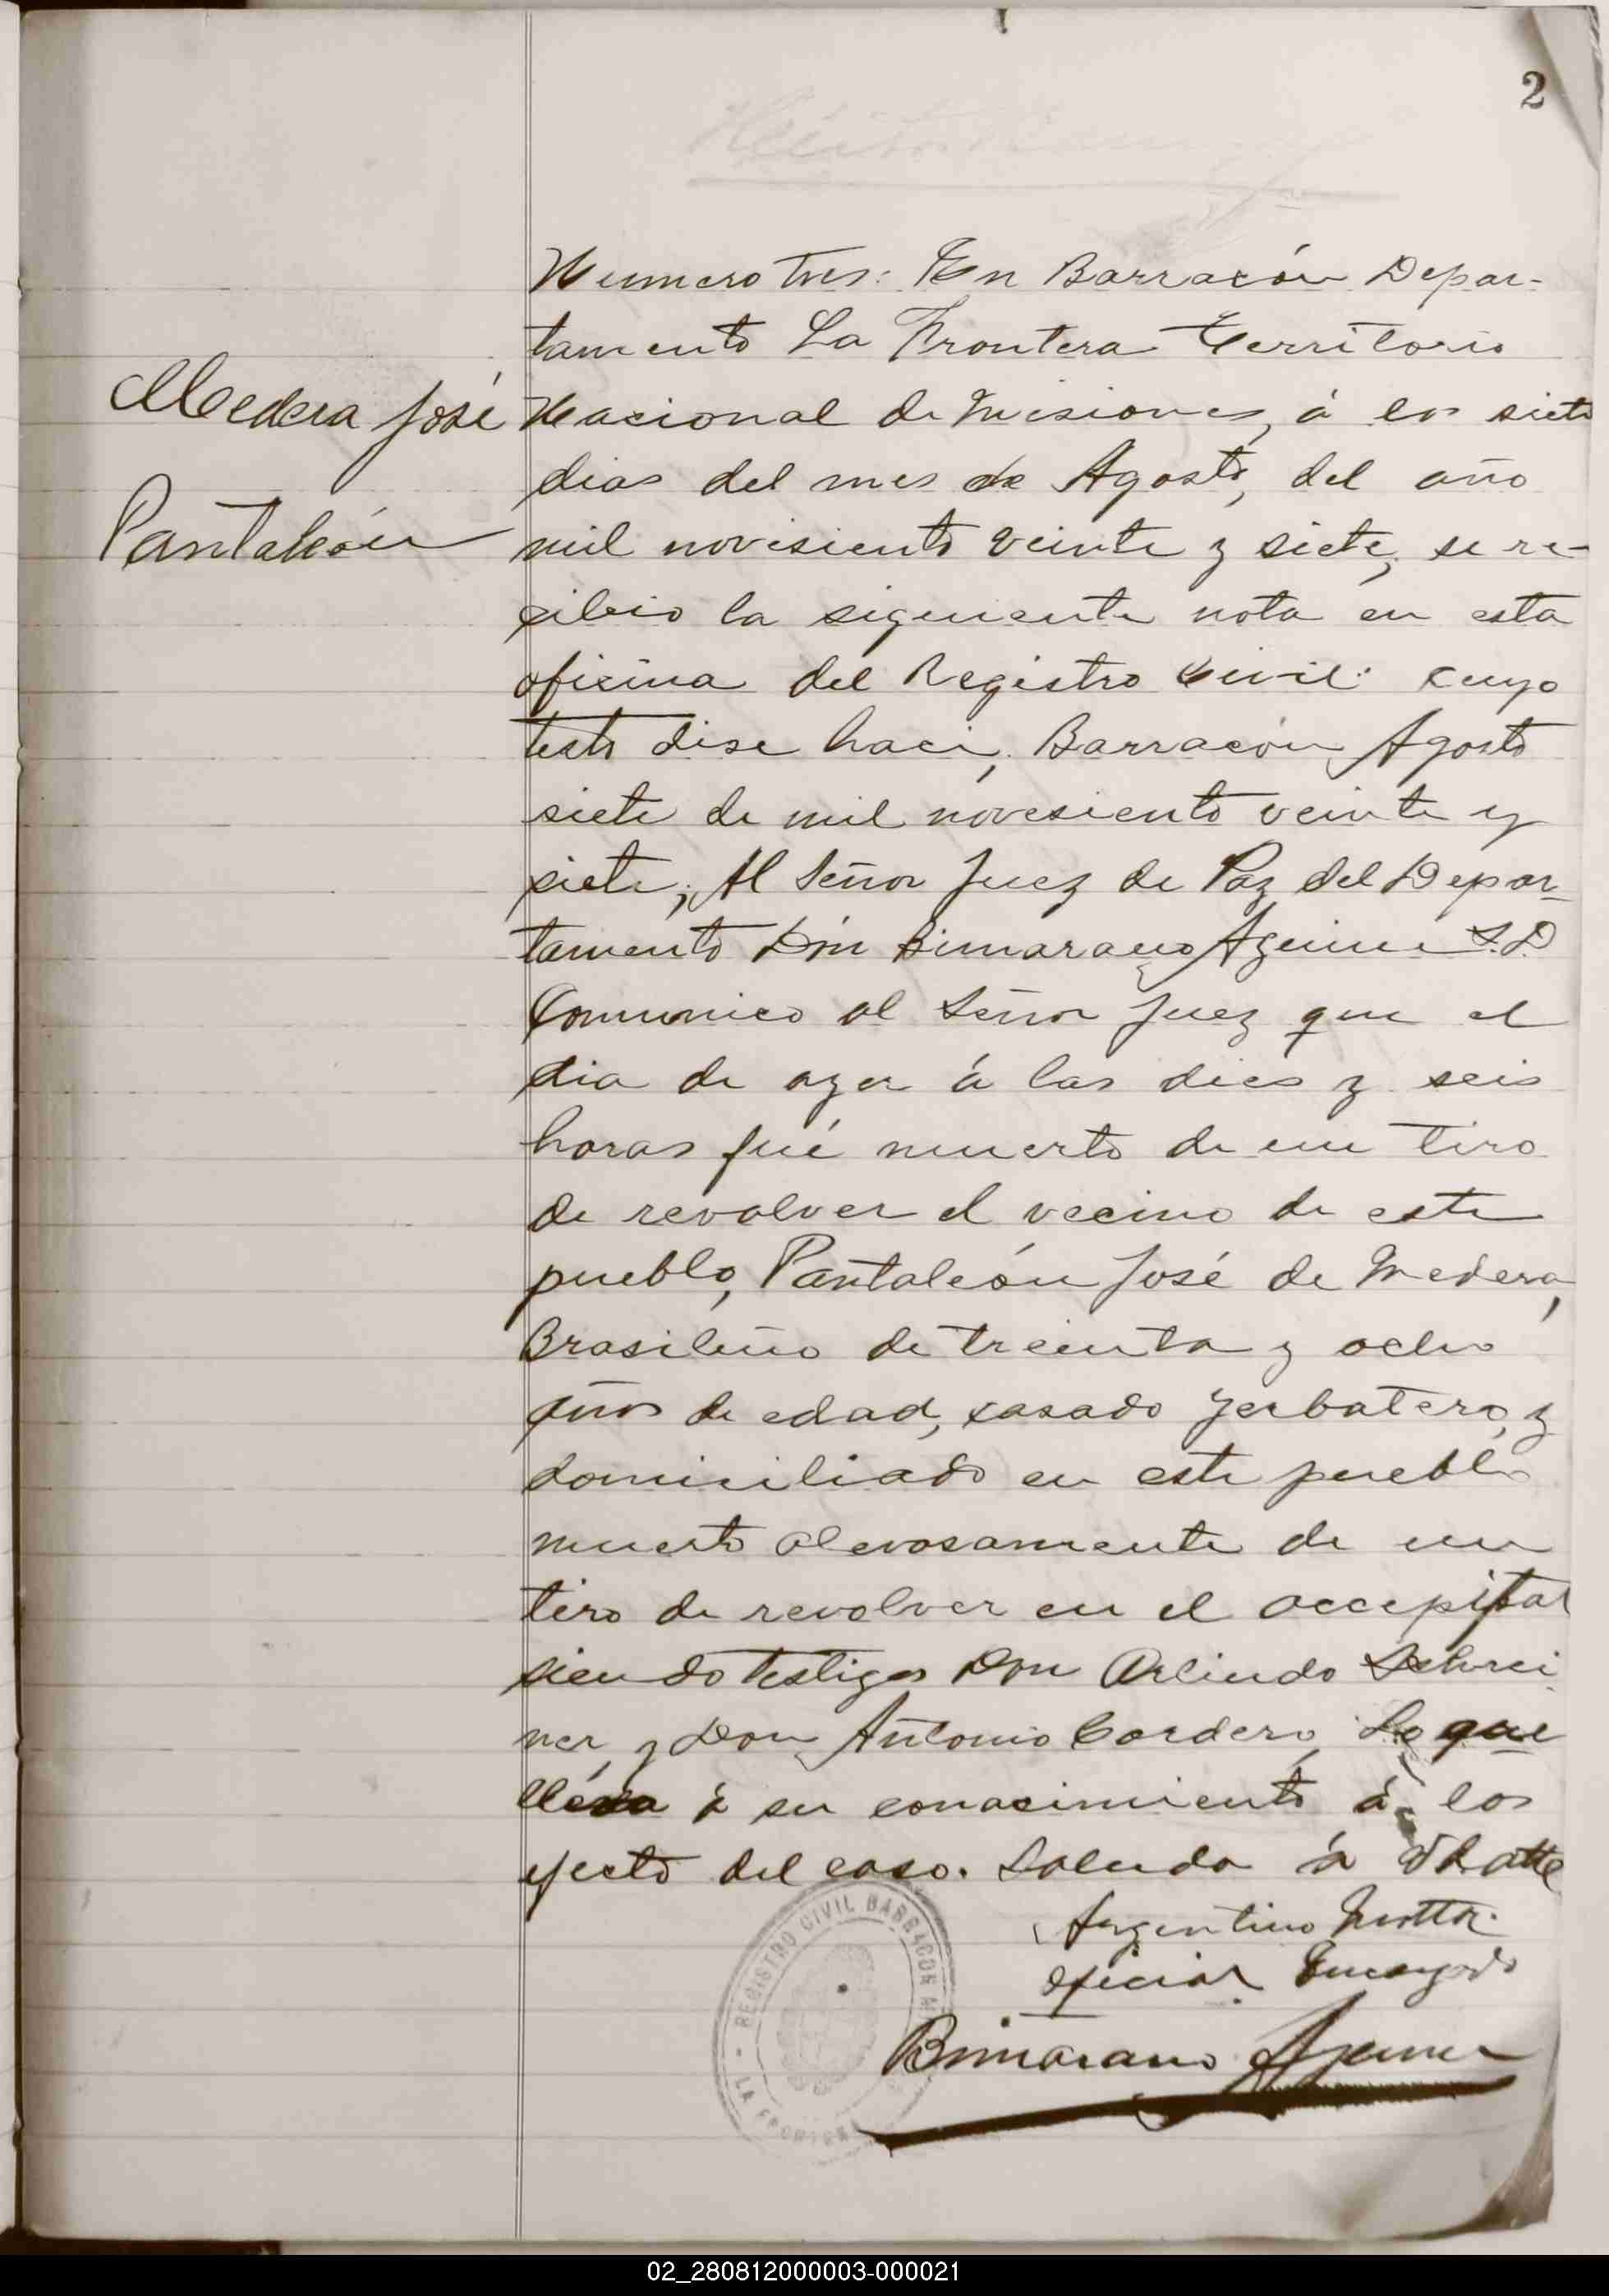 2
Numero tres: En Barracón Depar-
tamento La Frontera Territorio
Medera José
Nacional de Misiones, á los siete
dias del mes de Agosto, del año
Pantaleón
mil novisiento veinte y siete, se re-
cibio la siguiente nota en esta
oficina del Registro Civil: cuyo
testo dise haci, Barracón Agosto
siete de mil novesiento veinte y
siete; Al Señor Juez de Paz del Depar-
tamento Don Bimarano S.D
Comunico al Señor Juez que el
dia de ayer á las dies y seis
horas fué muerto de un tiro
de revolver el vecino de este
pueblo, Pantaleón José de Medera,
Brasileño de treinta y ocho
años de edad, casado yerbatero, y
domiciliado en este pueblo
muerto alevosamente de un
tiro de revolver en el occipital
siendo testigos Don Arlindo Schrei
ner, y Don Antonio Cordero, Lo que
lleva á su conosimiento á los
efecto del caso. Saluda á Vd. atte
Argentino
oficial Encargado
REGISTRO CIVIL BARRACON
LA FRONTERA
Bimarano
02_280812000003-000021